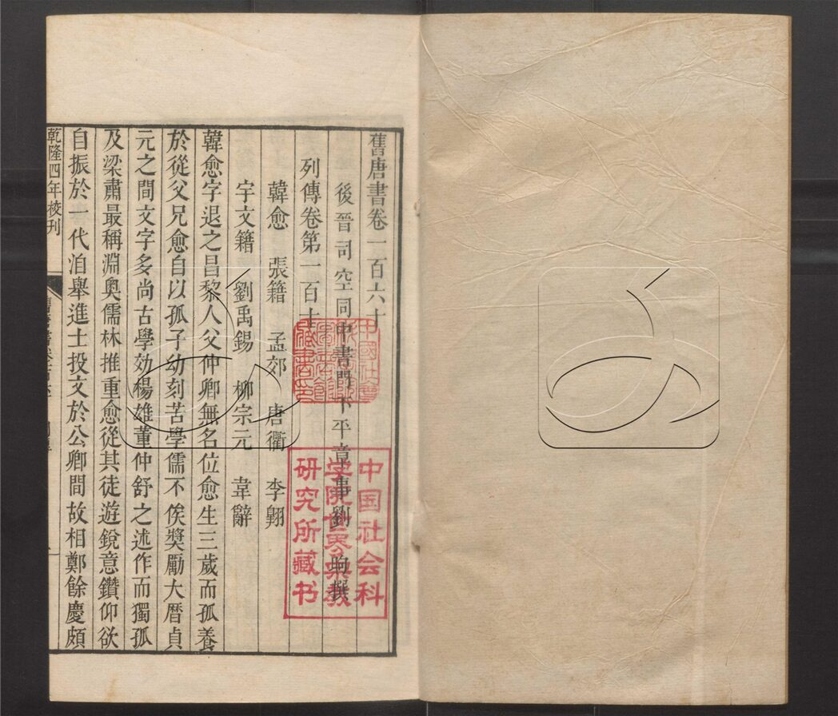 舊唐書卷一百六十
後晉司空同中書門下平章事劉昫撰
列傳卷第一百十
韓愈 張籍 孟郊 唐衢 李翱
宇文籍 劉禹錫 柳宗元 韋辭
韓愈字退之昌黎人父仲卿無名位愈生三歲而孤養
於從父兄愈自以孤子幼刻苦學儒不俟奬勵大曆貞
元之間文字多尚古學効楊雄董仲舒之述作而獨孤
及梁肅最稱淵奥儒林推重愈從其徒遊銳意鑽仰欲
自振於一代洎舉進士投文於公卿間故相鄭餘慶頗
乾隆四年校刊
中国社会科
学院世界宗教
研究所藏书